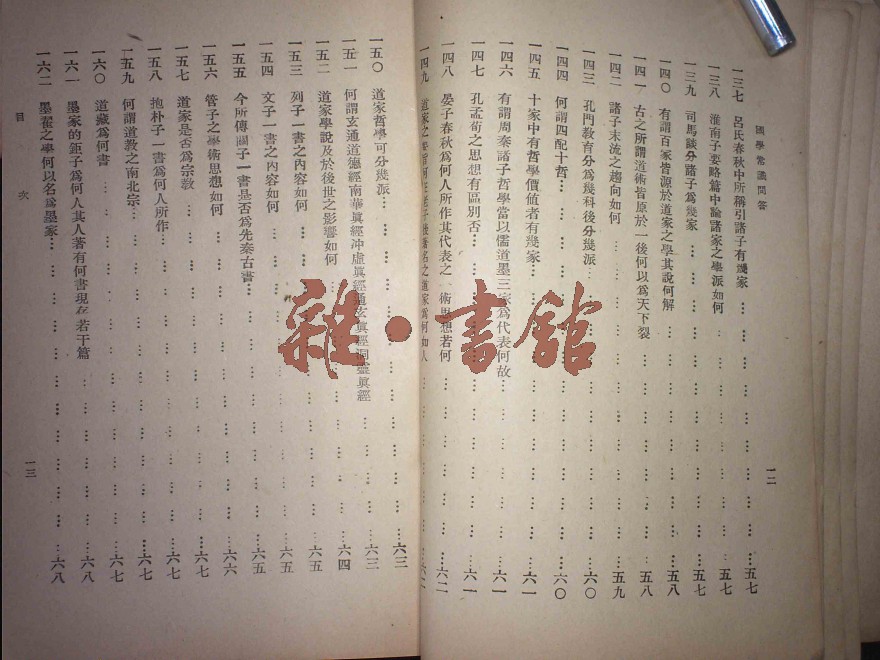 國學常識問答
一三七 呂氏春秋中所稱引諸子有幾家……五七
一三八 淮南子要略篇中論諸家之學派如何……五七
一三九 司馬談分諸子為幾家……五七
一四〇 有謂百家皆源於道家之學其說何解……五八
一四一 古之所謂道術皆原於一後何以為天下裂……五八
一四二 諸子末流之趨向如何……五九
一四三 孔門教育分為幾科後分幾派……六〇
一四四 何謂四配十哲……六〇
一四五 十家中有哲學價值者有幾家……六一
一四六 有謂周秦諸子哲學當以儒道墨三家為代表何故……六一
一四七 孔孟荀之思想有區別否……六一
一四八 晏子春秋為何人所作其代表之 術思想若何……六二
一四九 道家之 老子後著名之道家為何如人……六二
一二
一五〇 道家哲學可分幾派……六三
一五一 何謂玄通道德經南華眞經沖虛眞經通玄眞經洞靈眞經……六四
一五二 道家學說及於後世之影響如何……六五
一五三 列子一書之內容如何……六五
一五四 文子一書之內容如何……六五
一五五 今所傳關子一書是否為先秦古書……六六
一五六 管子之學術思想如何……六六
一五七 道家是否為宗教……六七
一五八 抱朴子一書為何人所作……六七
一五九 何謂道教之南北宗……六七
一六〇 道藏為何書……六七
一六一 墨家的鉅子為何人其人著有何書現存若干篇……六八
一六二 墨翟之學何以名為墨家……六八
目次
一三
雜·書館